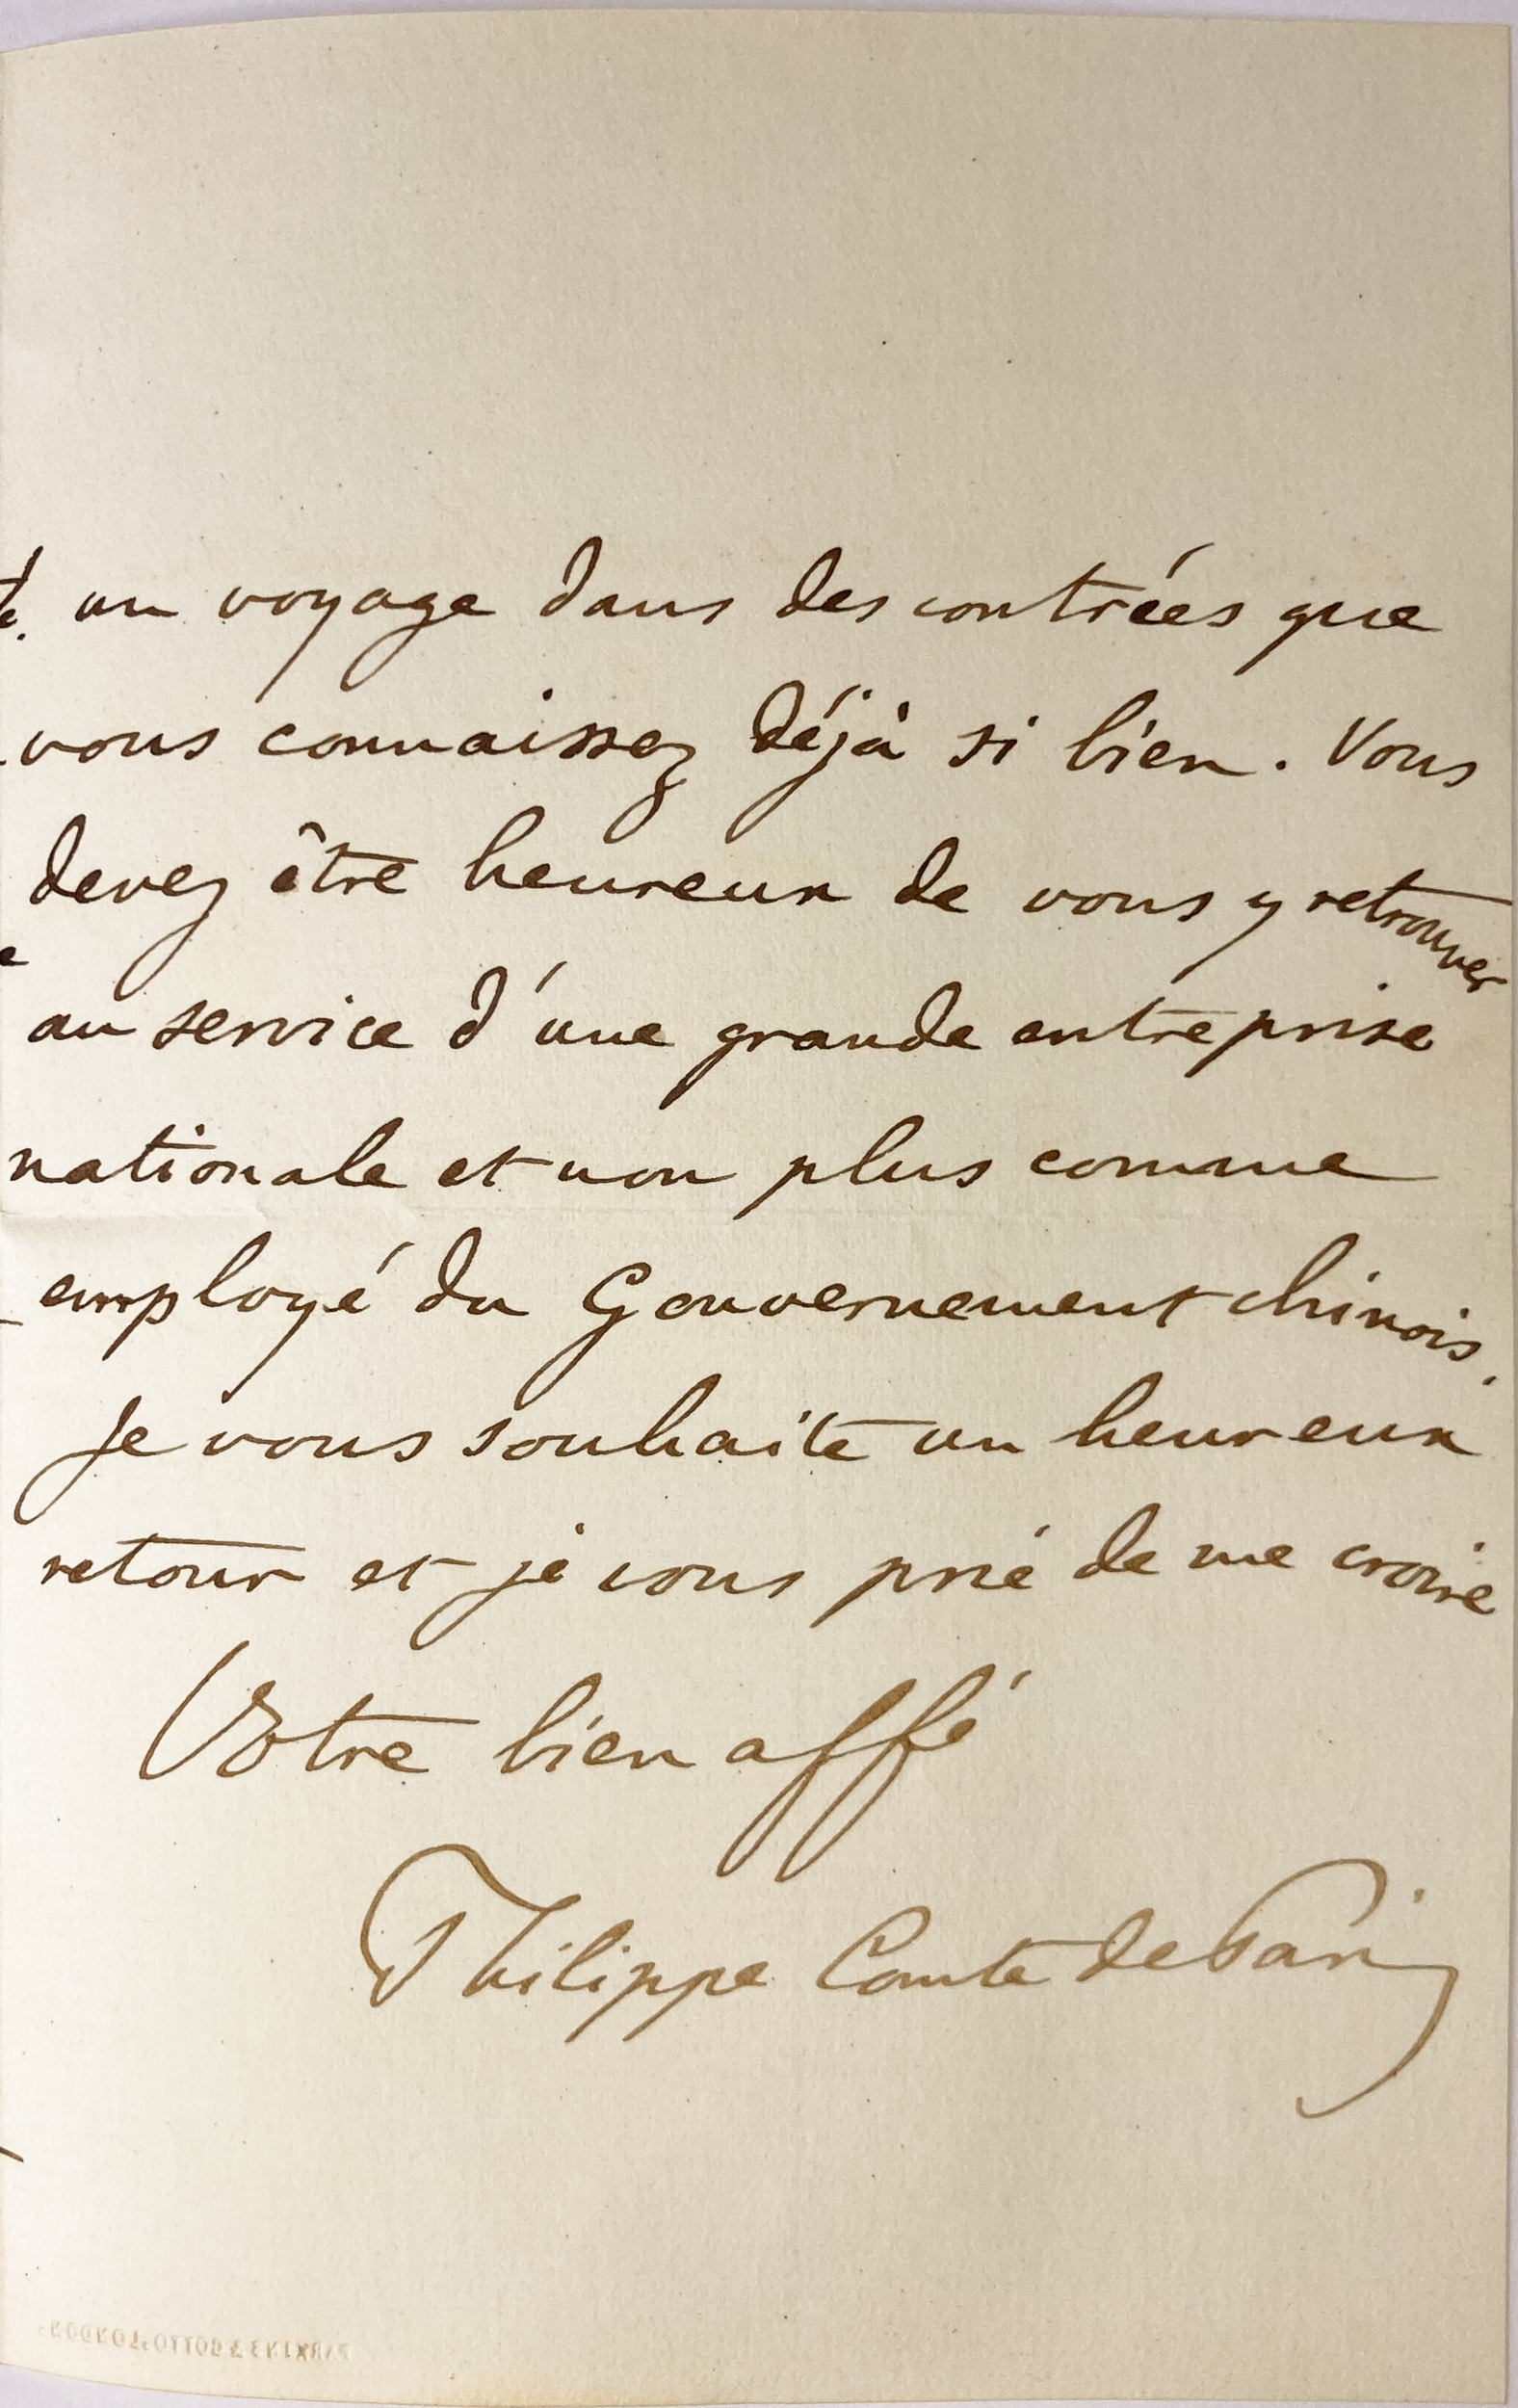 un voyage dans des contrées que
vous connaissez déjà si bien. Vous
devez être heureux de vous y retrouver
au service d'une grande entreprise
nationale et non plus comme
employé du Gouvernement chinois.
Je vous souhaite un heureux
retour et je vous prie de me croire
Votre bien affé
Philippe Comte de Paris
PARKINS & GOTTO. LONDON.